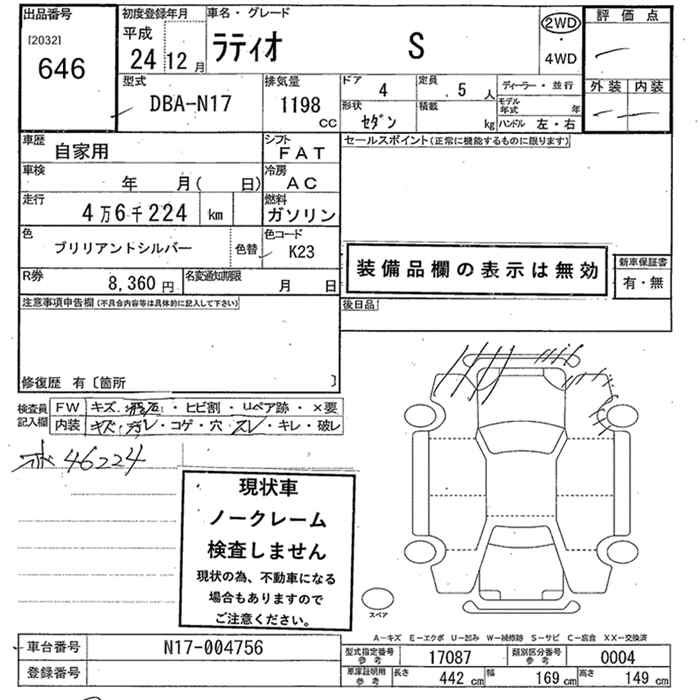 出品番号 初度登録年月 車名・グレード 評価点
[2032] 平成 2WD
646 24 12月 ラティオ S 4WD
型式 排気量 ドア 4 定員 5人 ディーラー・並行 外装 内装
DBA-N17 1198cc 形状 セダン 積載 kg モデル年式 年
ハンドル 左・右
車歴 自家用 シフト FAT セールスポイント(正常に機能するものに限ります)
車検 年 月( 日) 冷房 AC
走行 4万6千224 km 燃料 ガソリン
色 ブリリアントシルバー 色替 色コード K23
装備品欄の表示は無効 新車保証書
有・無
R券 8,360円 名変通知期限 月 日
注意事項申告欄(不具合内容等は具体的に記入して下さい) 後日品
修復歴 有〔箇所 〕
検査員記入欄 FW キズ・飛石・ヒビ割・リペア跡・×要
内装 キズ・汚レ・コゲ・穴・スレ・キレ・破レ
46224
現状車
ノークレーム
検査しません
現状の為、不動車になる
場合もありますので
ご注意ください。
スペア
A-キズ E-エクボ U-凹み W-補修跡 S-サビ C-腐食 XX-交換済
車台番号 N17-004756
型式指定番号 参考 17087 類別区分番号 参考 0004
登録番号
車庫証明用 参考 長さ 442 cm 幅 169 cm 高さ 149 cm